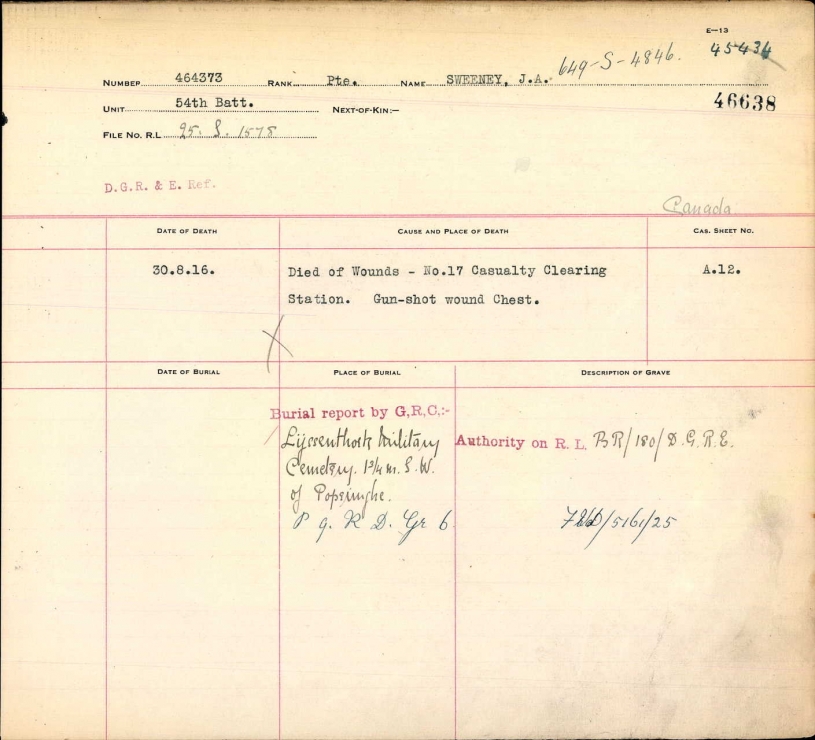 E—13
45434
649-S-4846.
NUMBER 464373 RANK Pte. NAME SWEENEY, J.A.
46638
UNIT 54th Batt. NEXT-OF-KIN:—
FILE NO. R.L 25. S. 1578
D.G.R. & E. Ref.
Canada
DATE OF DEATH CAUSE AND PLACE OF DEATH CAS. SHEET NO.
30.8.16. Died of Wounds - No.17 Casualty Clearing A.12.
Station. Gun-shot wound Chest.
DATE OF BURIAL PLACE OF BURIAL DESCRIPTION OF GRAVE
Burial report by G,R,C,:-
Lijssenthoek Military Authority on R. L. BR/180/D.G.R.E.
Cemetery. 1¾ m. S.W.
of Popsinghe.
P 9. R D. Gr 6. /5161/25